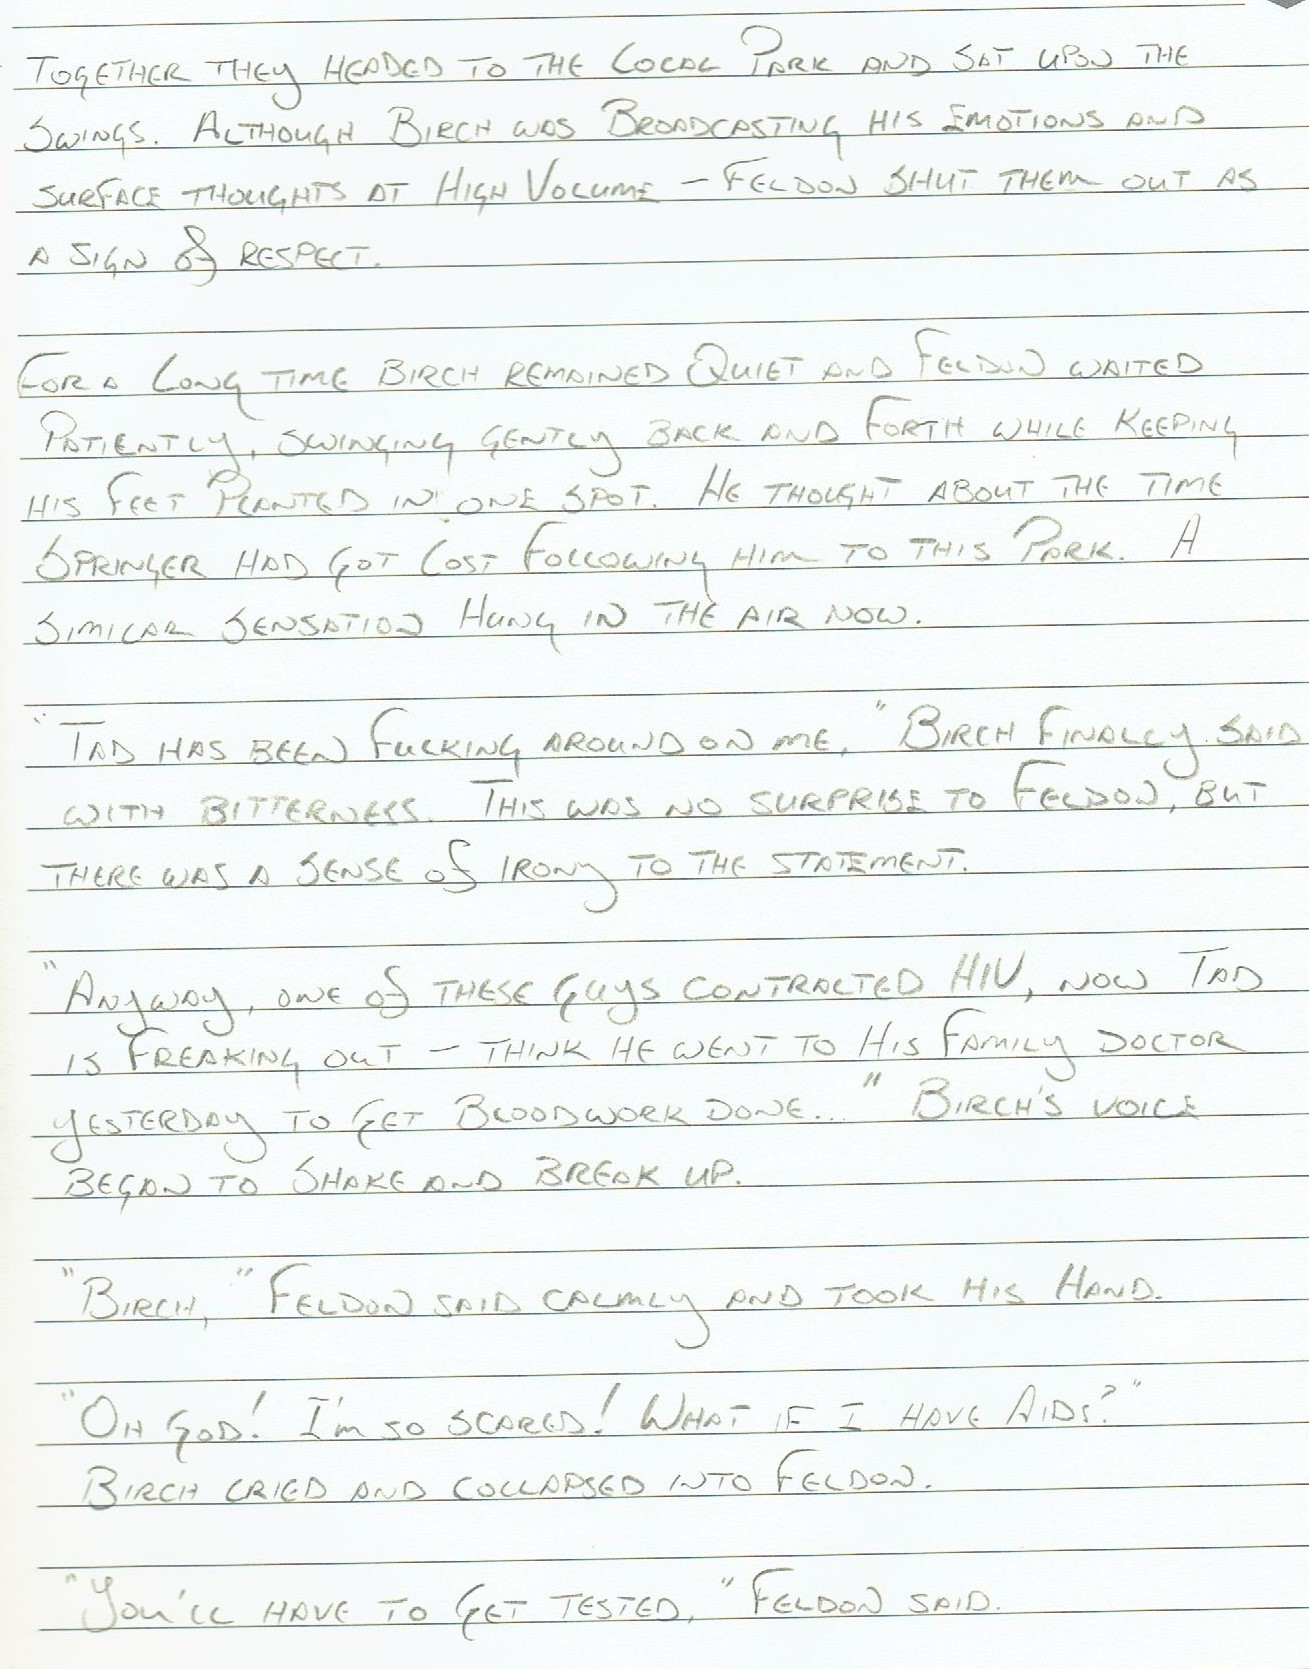 Together they headed to the local Park and sat upon the
Swings. Although Birch was Broadcasting his Emotions and
surface thoughts at High Volume – Feldon shut them out as
a sign of respect.
For a long time Birch remained Quiet and Feldon waited
Patiently, swinging gently back and forth while keeping
his feet Planted in one spot. He thought about the time
Springer had got lost following him to this Park. A
similar sensation Hung in the air now.
"Tad has been fucking around on me," Birch finally said
with bitterness. This was no surprise to Feldon, but
there was a sense of irony to the statement.
"Anyway, one of these guys contracted HIV, now Tad
is freaking out – think he went to His family doctor
yesterday to get Bloodwork done..." Birch's voice
began to Shake and break up.
"Birch," Feldon said calmly and took his Hand.
"Oh God! I'm so scared! What if I have Aids?"
Birch cried and collapsed into Feldon.
"You'll have to get tested," Feldon said.